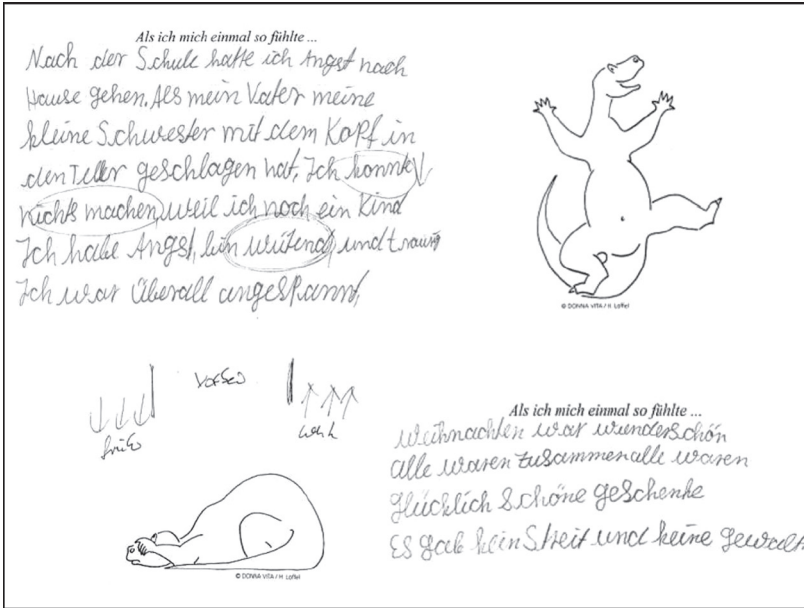 Als ich mich einmal so fühlte ...
Nach der Schule hatte ich Angst nach
Hause gehen. Als mein Vater meine
kleine Schwester mit dem Kopf in
den Teller geschlagen hat, Ich konnte
nichts machen, weil ich noch ein Kind
Ich habe Angst, bin wütend, und traurig
Ich war Überall angespannt,
© DONNA VITA / H. Löffel
Als ich mich einmal so fühlte ...
Weihnachten war wunderschön
alle waren zusammen alle waren
glücklich schöne geschenke
Es gab kein Streit und keine gewalt
© DONNA VITA / H. Löffel